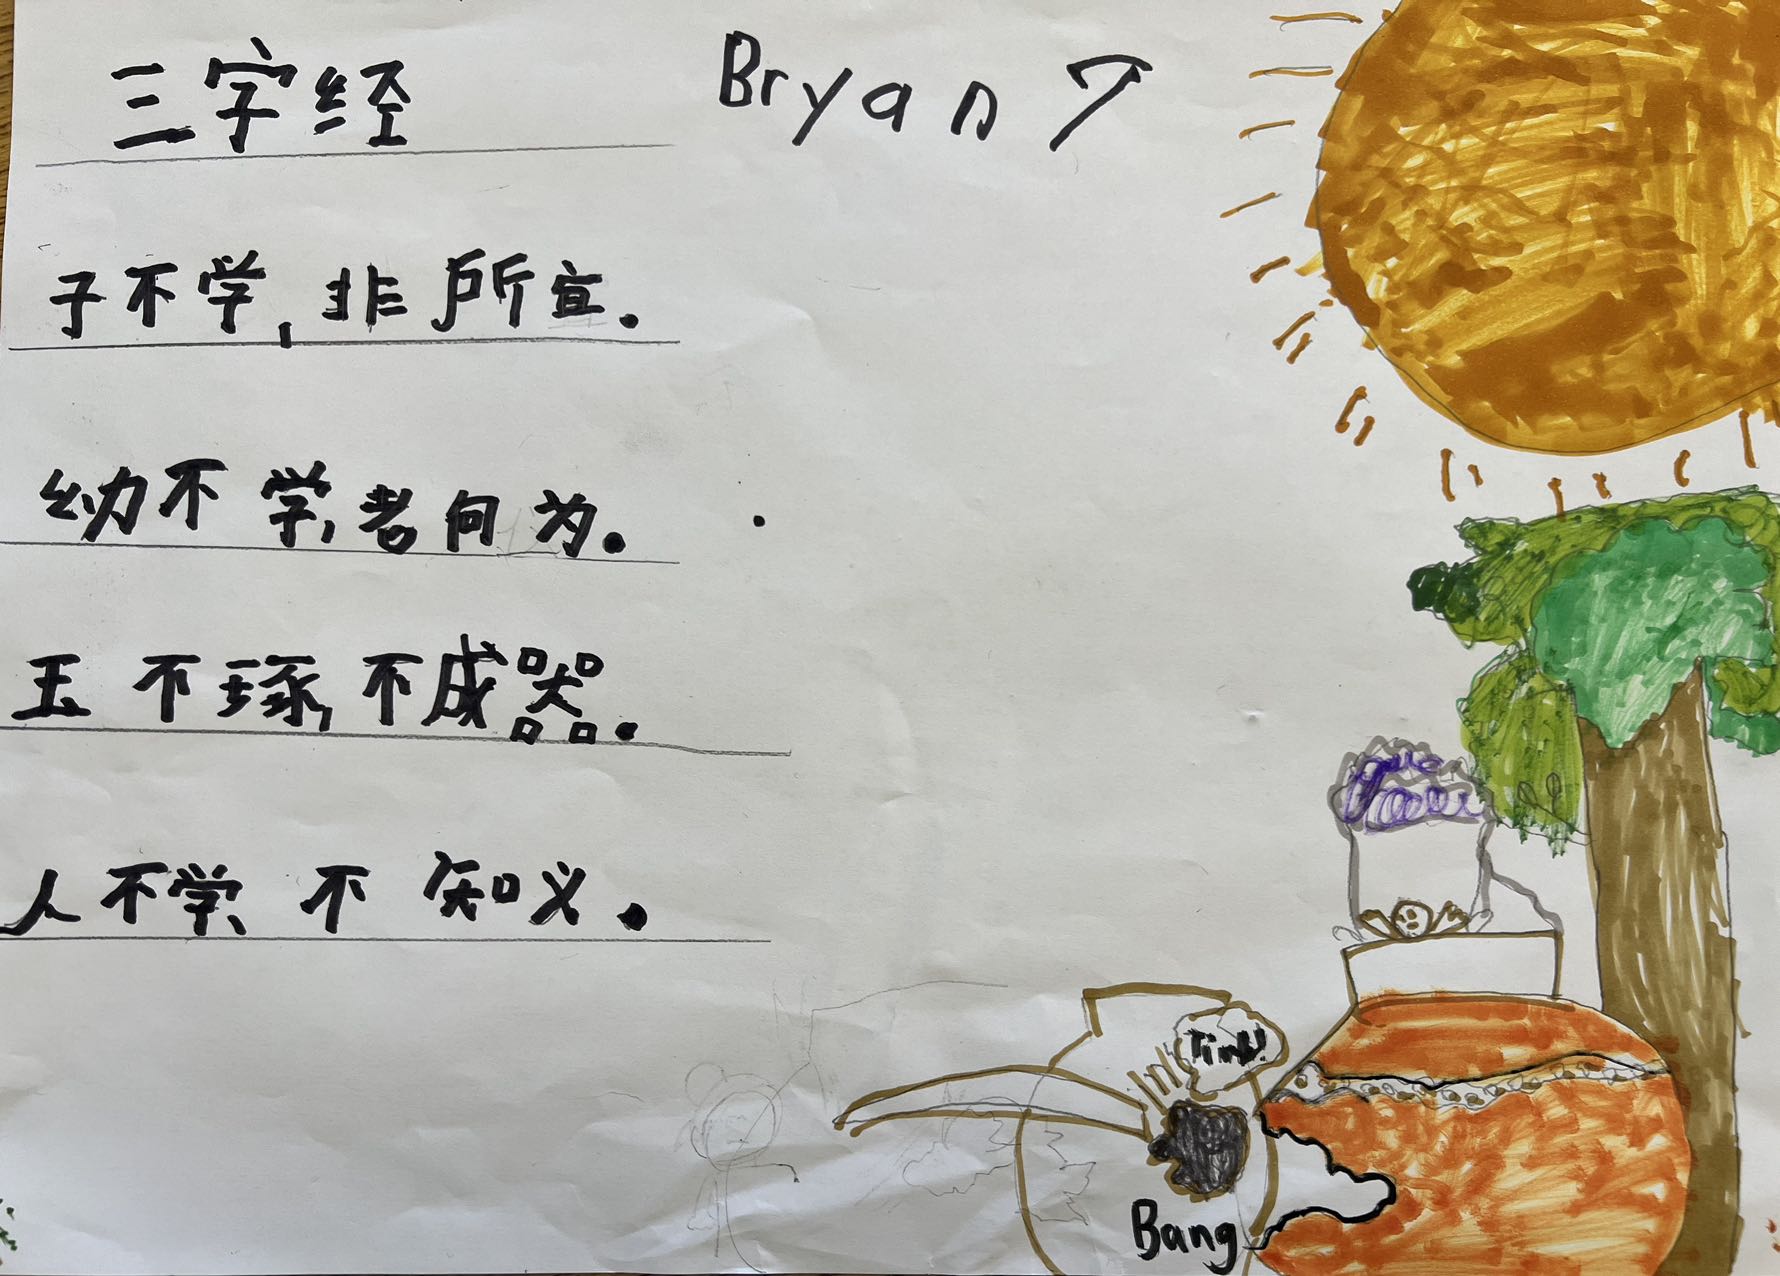 三字经
Bryan 7
子不学,非所宜.
幼不学,老何为.
玉不琢,不成器.
人不学,不知义.
Tink!
Bang